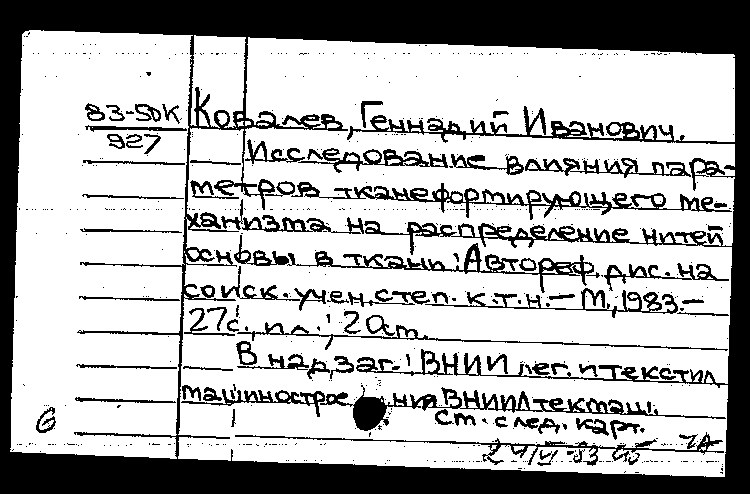 83-50К Ковалев, Геннадий Иванович.
927
Исследование влияния пара-
метров тканеформирующего ме-
ханизма на распределение нитей
основы в ткани: Автореф. дис. на
соиск. учен. степ. к.т.н. - М., 1983. -
27с., ил.; 20 см.
В надзаг.: ВНИИ лег. и текстил.
машинострое ния ВНИИЛтекмаш.
См. след. карт.
6
24/VI-83